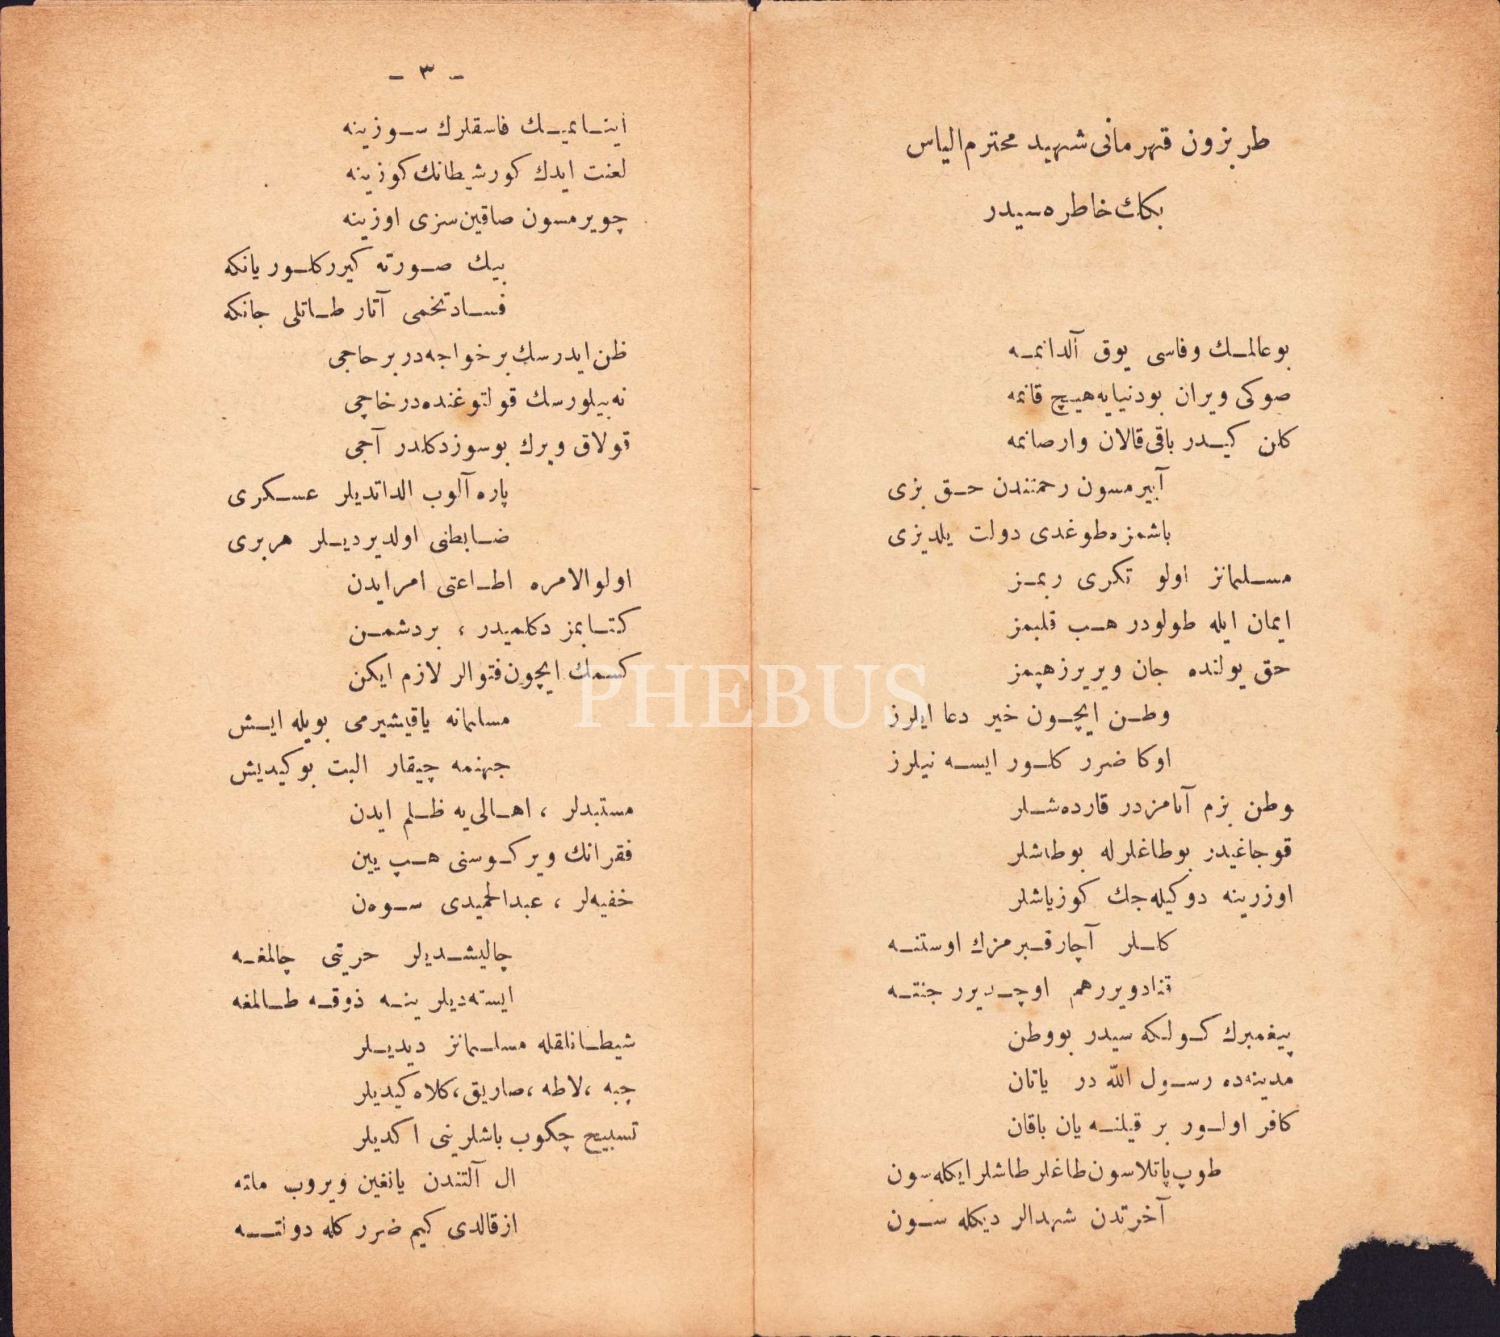 طربزون قهرمانی شهید محترم الیاس
بكك خاطره سیدر
بو عالمك وفاسی یوق آلدانمه
صوكی ویران بودنیایه هیچ قانمه
كلن كیدر باقی قالان وار صانمه
آییرمسون رحمتندن حق بزی
باشمزه طوغدی دولت یلدیزی
مسلمانز اولو تكری ربمز
ایمان ایله طولودر هب قلبمز
حق یولنده جان ویریرز هپمز
وطن ایچون خیر دعا ایلرز
اوكا ضرر كلور ایسه نیلرز
وطن بزم آنامزدر قارده شلر
قوجاغیدر بوطاغلرله بوطاشلر
اوزرینه دوكیله جك كوزیاشلر
كللر آچار قبرمزك اوستنه
قنادویررهم اوچدیرر جنته
پیغمبرك كولكه سیدر بووطن
مدینه ده رسول الله در یاتان
كافر اولور بر قیلنه یان باقان
طوپ پاتلاسون طاغلر طاشلر ایكله سون
آخرتدن شهدالر دیكله سون
– ٣ –
اینانمیك فاسقلرك سوزینه
لعنت ایدك كور شیطانك كوزینه
چویرمسون صاقین سزی اوزینه
بیك صورته كیرر كلور یانكه
فساد تخمی آتار طاتلی جانكه
ظن ایدرسك بر خواجه در بر حاجی
نه بیلورسك قولتوغنده در خاچی
قولاق ویرك بوسوز دكلدر آجی
پاره آلوب الداتدیلر عسكری
ضابطنی اولدیردیلر هربری
اولوالامره اطاعتی امر ایدن
كتابمز دكلمیدر ، بر دشمن
كسمك ایچون فتوالر لازم ایكن
مسلمانه یاقیشیرمی بویله ایش
جهنمه چیقار البت بو كیدیش
مستبدلر ، اهالی یه ظلم ایدن
فقرانك ویركوسنی هپ یین
خفیه لر ، عبدالحمیدی سوه ن
چالیشدیلر حریتی چالمغه
ایسته دیلر ینه ذوقه طالمغه
شیطانلقله مسلمانز دیدیلر
جبه ، لاطه ، صاریق ، كلاه كیدیلر
تسبیح چكوب باشلرینی اكدیلر
ال آلتندن یانغین ویروب ملته
از قالدی كیم ضرر كله دولته
PHEBUS